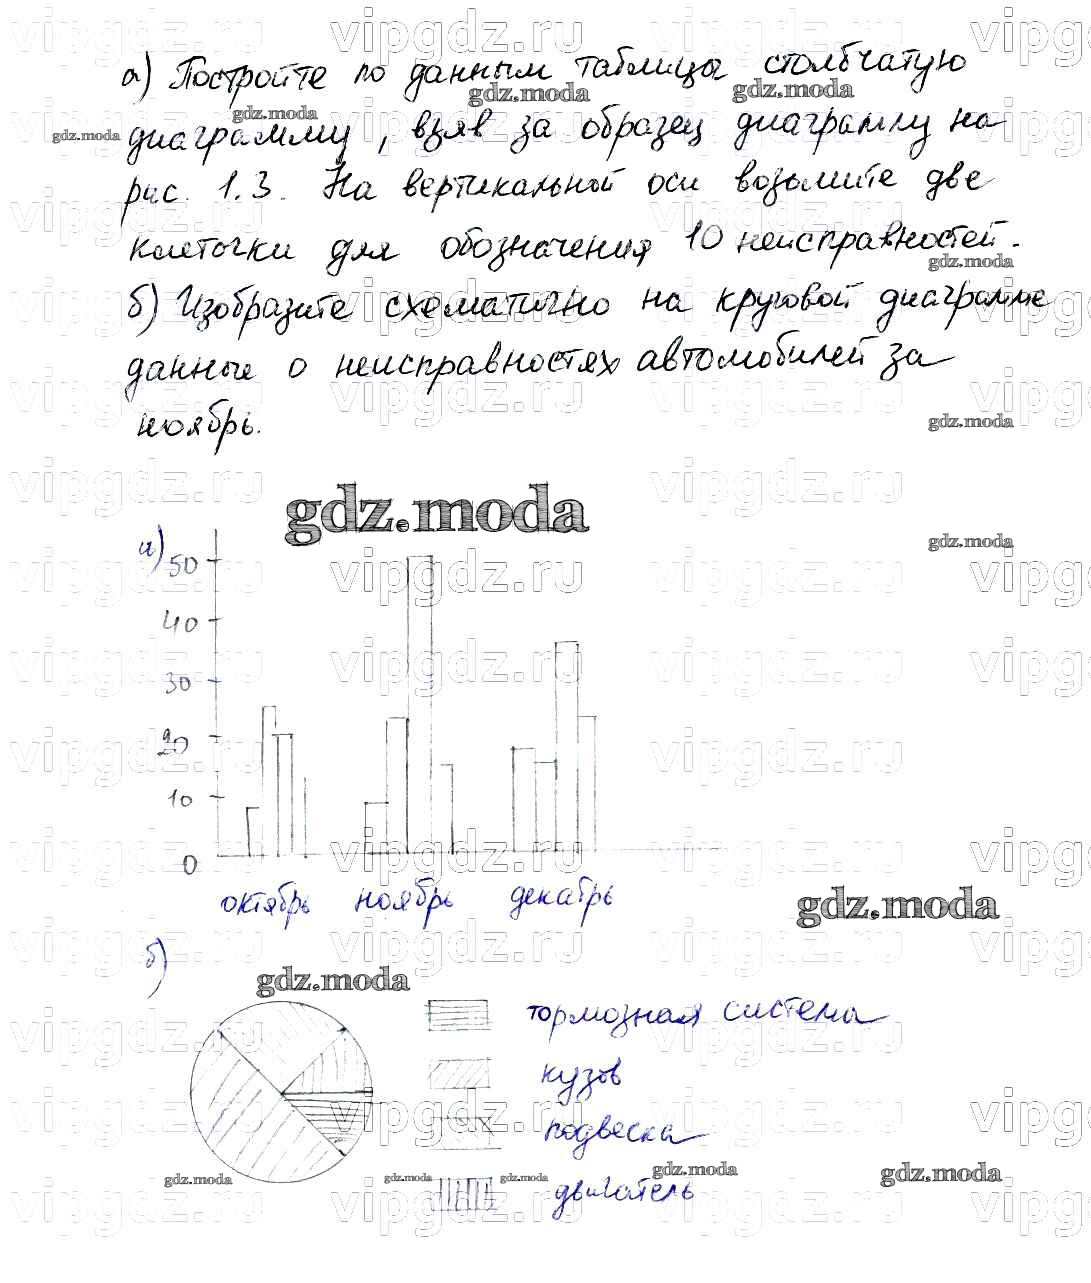 а) Постройте по данным таблицы столбчатую
диаграмму, взяв за образец диаграмму на
рис. 1.3. На вертикальной оси возьмите две
клеточки для обозначения 10 неисправностей.
б) Изобразите схематично на круговой диаграмме
данные о неисправностях автомобилей за
ноябрь.
gdz.moda
а)
50
40
30
20
10
0
октябрь ноябрь декабрь
gdz.moda
б)
gdz.moda
тормозная система
кузов
подвеска
двигатель
gdz.moda
vipgdz.ru